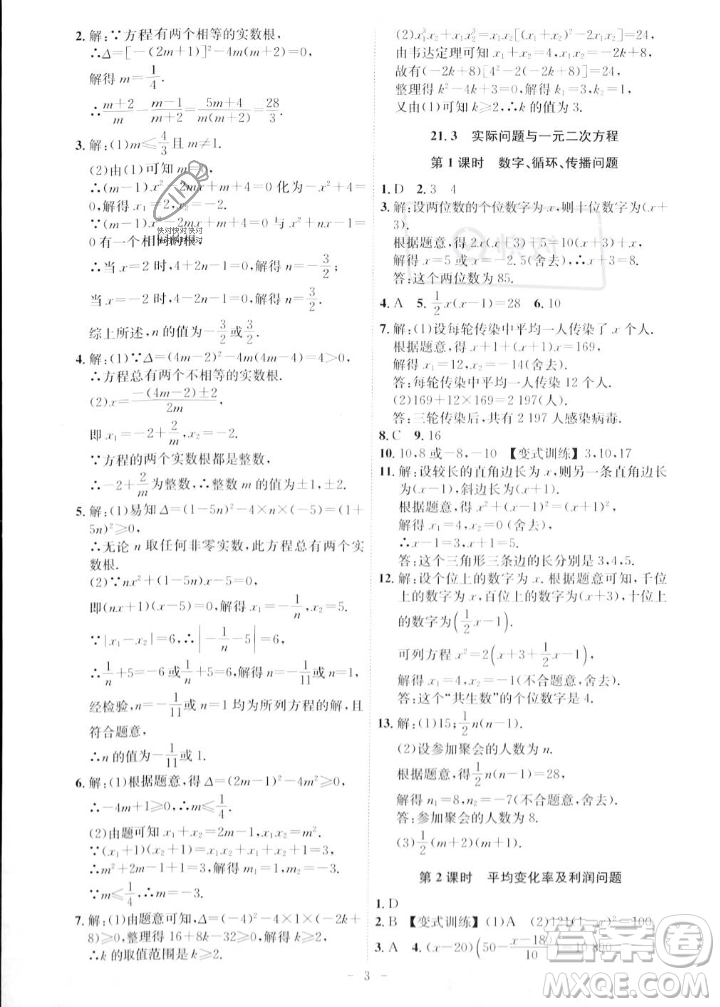 2. 解:∵方程有两个相等的实数根,
∴Δ=[-(2m+1)]²-4m(m+2)=0,
解得 m=1/4.
∴(m+2)/m-(m-1)/m=(5m+4)/m=28/3.
3. 解:(1)m≤3/4且 m≠1.
(2)由(1)可知 m=2.
∴(m-1)x²-2mx+m+n=0 化为-4x+4=0,
解得 x₁=x₂=2.
∵(m-1)x²-2mx+m+n=0 与
=0有一个相同的根,
∴当 x=2 时,4+2n-1=0,解得 n=-3/2;
当 x=-2 时,4-2n-1=0,解得 n=3/2.
综上所述,n 的值为-3/2或3/2.
4. 解:(1)∵Δ=(4m-2)²-4m(4m-4)=4>0,
∴方程总有两个不相等的实数根.
(2)x=(-(4m-2)±2)/2m,
即 x₁=-2+2/m,x₂=-2.
∵方程的两个实数根都是整数,
∴-2+2/m为整数,∴m=±1或±2.
5. 解:(1)易知 Δ=(1-5n)²-4×n×(-5)=(1+
5n)²≥0,
∴无论 n 取任何非零实数,此方程总有两个实
数根.
(2)∵nx²+(1-5n)x-5=0,
即(nx+1)(x-5)=0,解得 x₁=-1/n,x₂=5.
∵|x₁-x₂|=6,∴|-1/n-5|=6,
∴1/n+5=-6或1/n+5=6,解得 n=-1/11或 n=1.
经检验,n=-1/11或 n=1 均为所列方程的解,且
符合题意,
∴n 的值为-1/11或1.
6. 解:(1)根据题意,得 Δ=(2m-1)²-4m²≥0,
∴-4m+1≥0,解得 m≤1/4.
(2)由题可知 x₁+x₂=2m-1,x₁x₂=m².
∵(x₁+1)(x₂+1)=1,∴x₁x₂+(x₁+x₂)+1=1,
∴m²+2m-1=0,解得 m=-1±√2.
∵m≤1/4,∴m=-1-√2.
7. 解:(1)由题意可知,(-4)²-4×1×(-2k+
8)≥0,整理得 16+8k-32≥0,解得 k≥2,
∴k 的取值范围是 k≥2.
(2)x₁³x₂+x₁x₂³=24,∴x₁x₂[(x₁+x₂)²-2x₁x₂]=24,
由韦达定理可知 x₁+x₂=4,x₁x₂=-2k+8,
故有(-2k+8)[4²-2(-2k+8)]=24,
整理得 k²-4k+3=0,解得 k₁=3,k₂=1.
又由(1)可知 k≥2,∴k 的值为 3.
21.3 实际问题与一元二次方程
第1课时 数字、循环、传播问题
1. D 2. 3 4
3. 解:设两位数的个位数字为 x,则十位数字为(x+
3).
根据题意,得 2x(x+3)+5=10(x+3)+x,
解得 x=5或 x=-3.5(舍去).
答:这个两位数为 85.
4. A 5. 1/2x(x-1)=28 6. 10
7. 解:(1)设每轮传染中平均一人传染了 x 人.
根据题意,得 x+1+(x+1)x=169,
解得 x=12或 x=-14(舍去).
答:每轮传染中平均一人传染了 12 人.
(2)169+12×169=2 197(人).
答:三轮传染后,共有 2 197 人感染病毒.
8. C 9. 16
10. 10,8 或-8,-10 【变式训练】3,10,17
11. 解:设较长的直角边长为 x,则另一直角边长为
(x-1),斜边长为(x+1).
根据题意,得 x²+(x-1)²=(x+1)²,
解得 x₁=0(舍去),x₂=4.
答:这个三角形三条边的长分别是 3,4,5.
12. 解:设个位上的数字为 x. 根据题意可知,千位
上的数字为 x,百位上的数字为(x+3),十位上
的数字为(1/2x-1).
可列方程 x²=2(x+3+1/2x-1),
解得 x₁=4,x₂=-1(不合题意,舍去).
答:这个“共生数”的个位数字是 4.
13. 解:(1)15;1/2n(n-1).
(2)设参加聚会的人数为 n.
根据题意,得1/2n(n-1)=28,
解得 n₁=8,n₂=-7(不合题意,舍去).
答:参加聚会的人数为 8.
(3)1/2(m+2)(m+1).
第2课时 平均变化率及利润问题
1. D
2. B 【变式训练】(1)A (2)121(1-x)²=100
3. A 4. (x-20)(50-(x-18)/10)=10 800
- 3 -